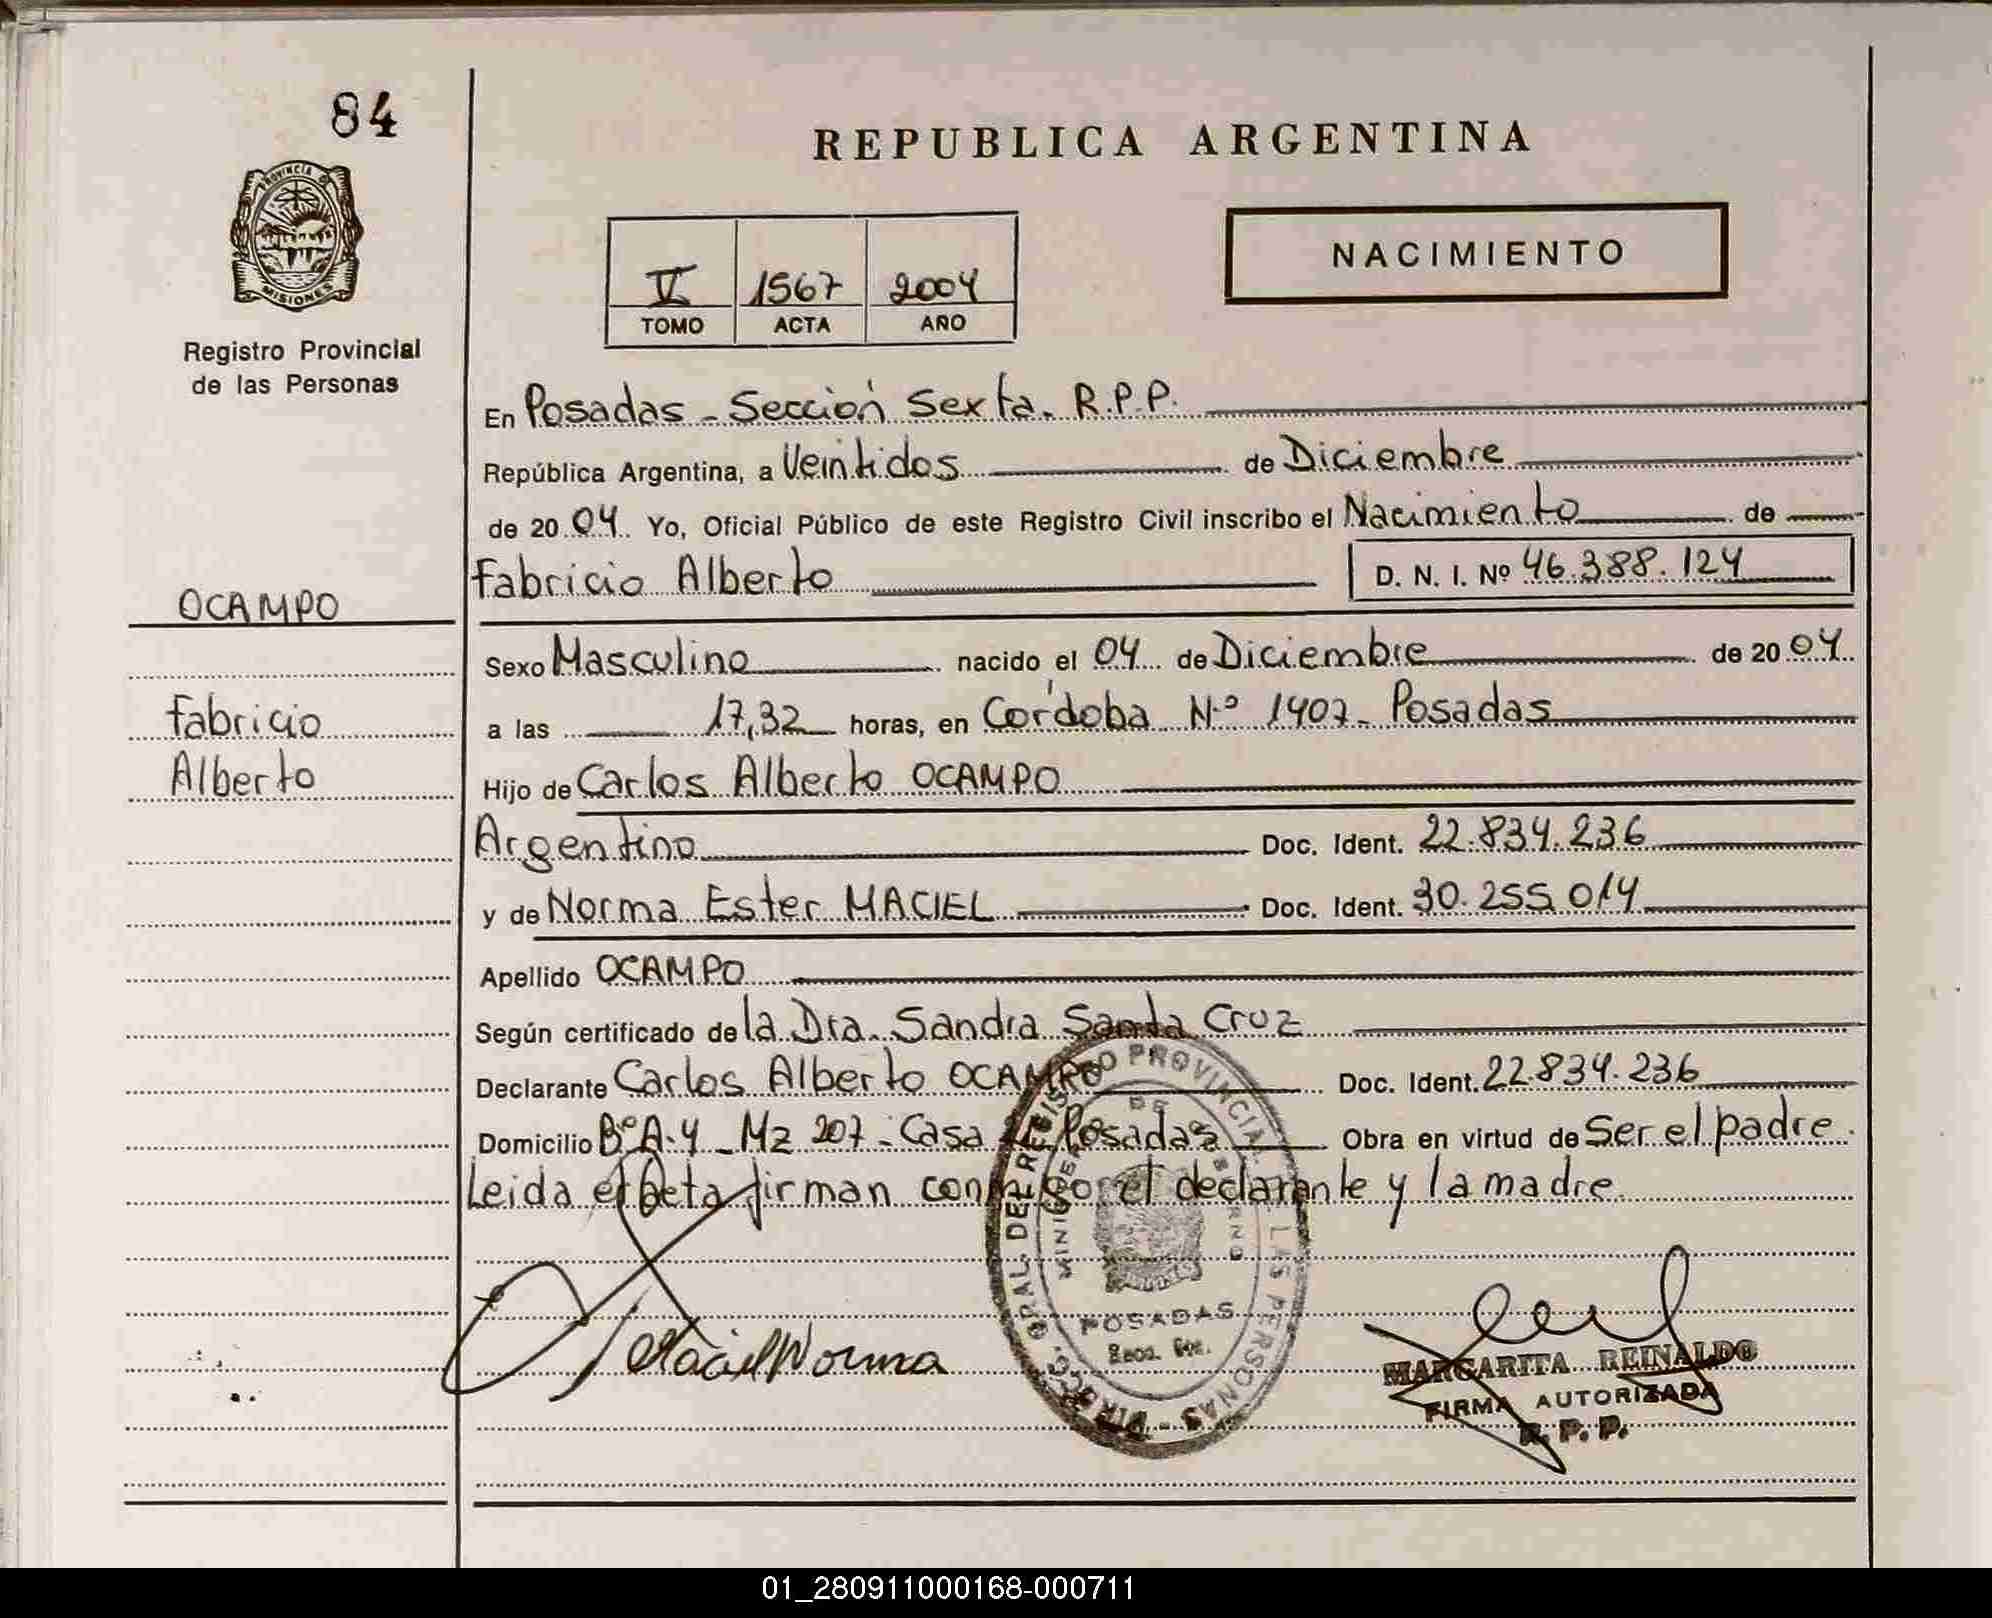 84
REPUBLICA ARGENTINA
PROVINCIA D
MISIONES
Registro Provincial
de las Personas
V 1567 2004
TOMO ACTA AÑO
NACIMIENTO
En Posadas - Sección Sexta. R.P.P.
República Argentina, a Veintidos de Diciembre
de 2004 Yo, Oficial Público de este Registro Civil inscribo el Nacimiento de
Fabricio Alberto D. N. I. Nº 46.388.124
OCAMPO
Sexo Masculino nacido el 04 de Diciembre de 2004
Fabricio
a las 17,32 horas, en Córdoba N.º 1407- Posadas
Alberto
Hijo de Carlos Alberto OCAMPO
Argentino Doc. Ident. 22.834.236
y de Norma Ester MACIEL Doc. Ident. 30.255.014
Apellido OCAMPO
Según certificado de la Dra. Sandra Santa Cruz
Declarante Carlos Alberto OCAMPO Doc. Ident. 22.834.236
Domicilio Bº A-4 - Mz 207 - Casa Posadas Obra en virtud de Ser el padre.
Leida el acta firman conmigo el declarante y la madre
DIRECC. GRAL. DEL REGISTRO PROVINCIAL DE LAS PERSONAS
POSADAS
Maciel Norma
MARGARITA REINALDO
FIRMA AUTORIZADA
R. P. P.
01_280911000168-000711